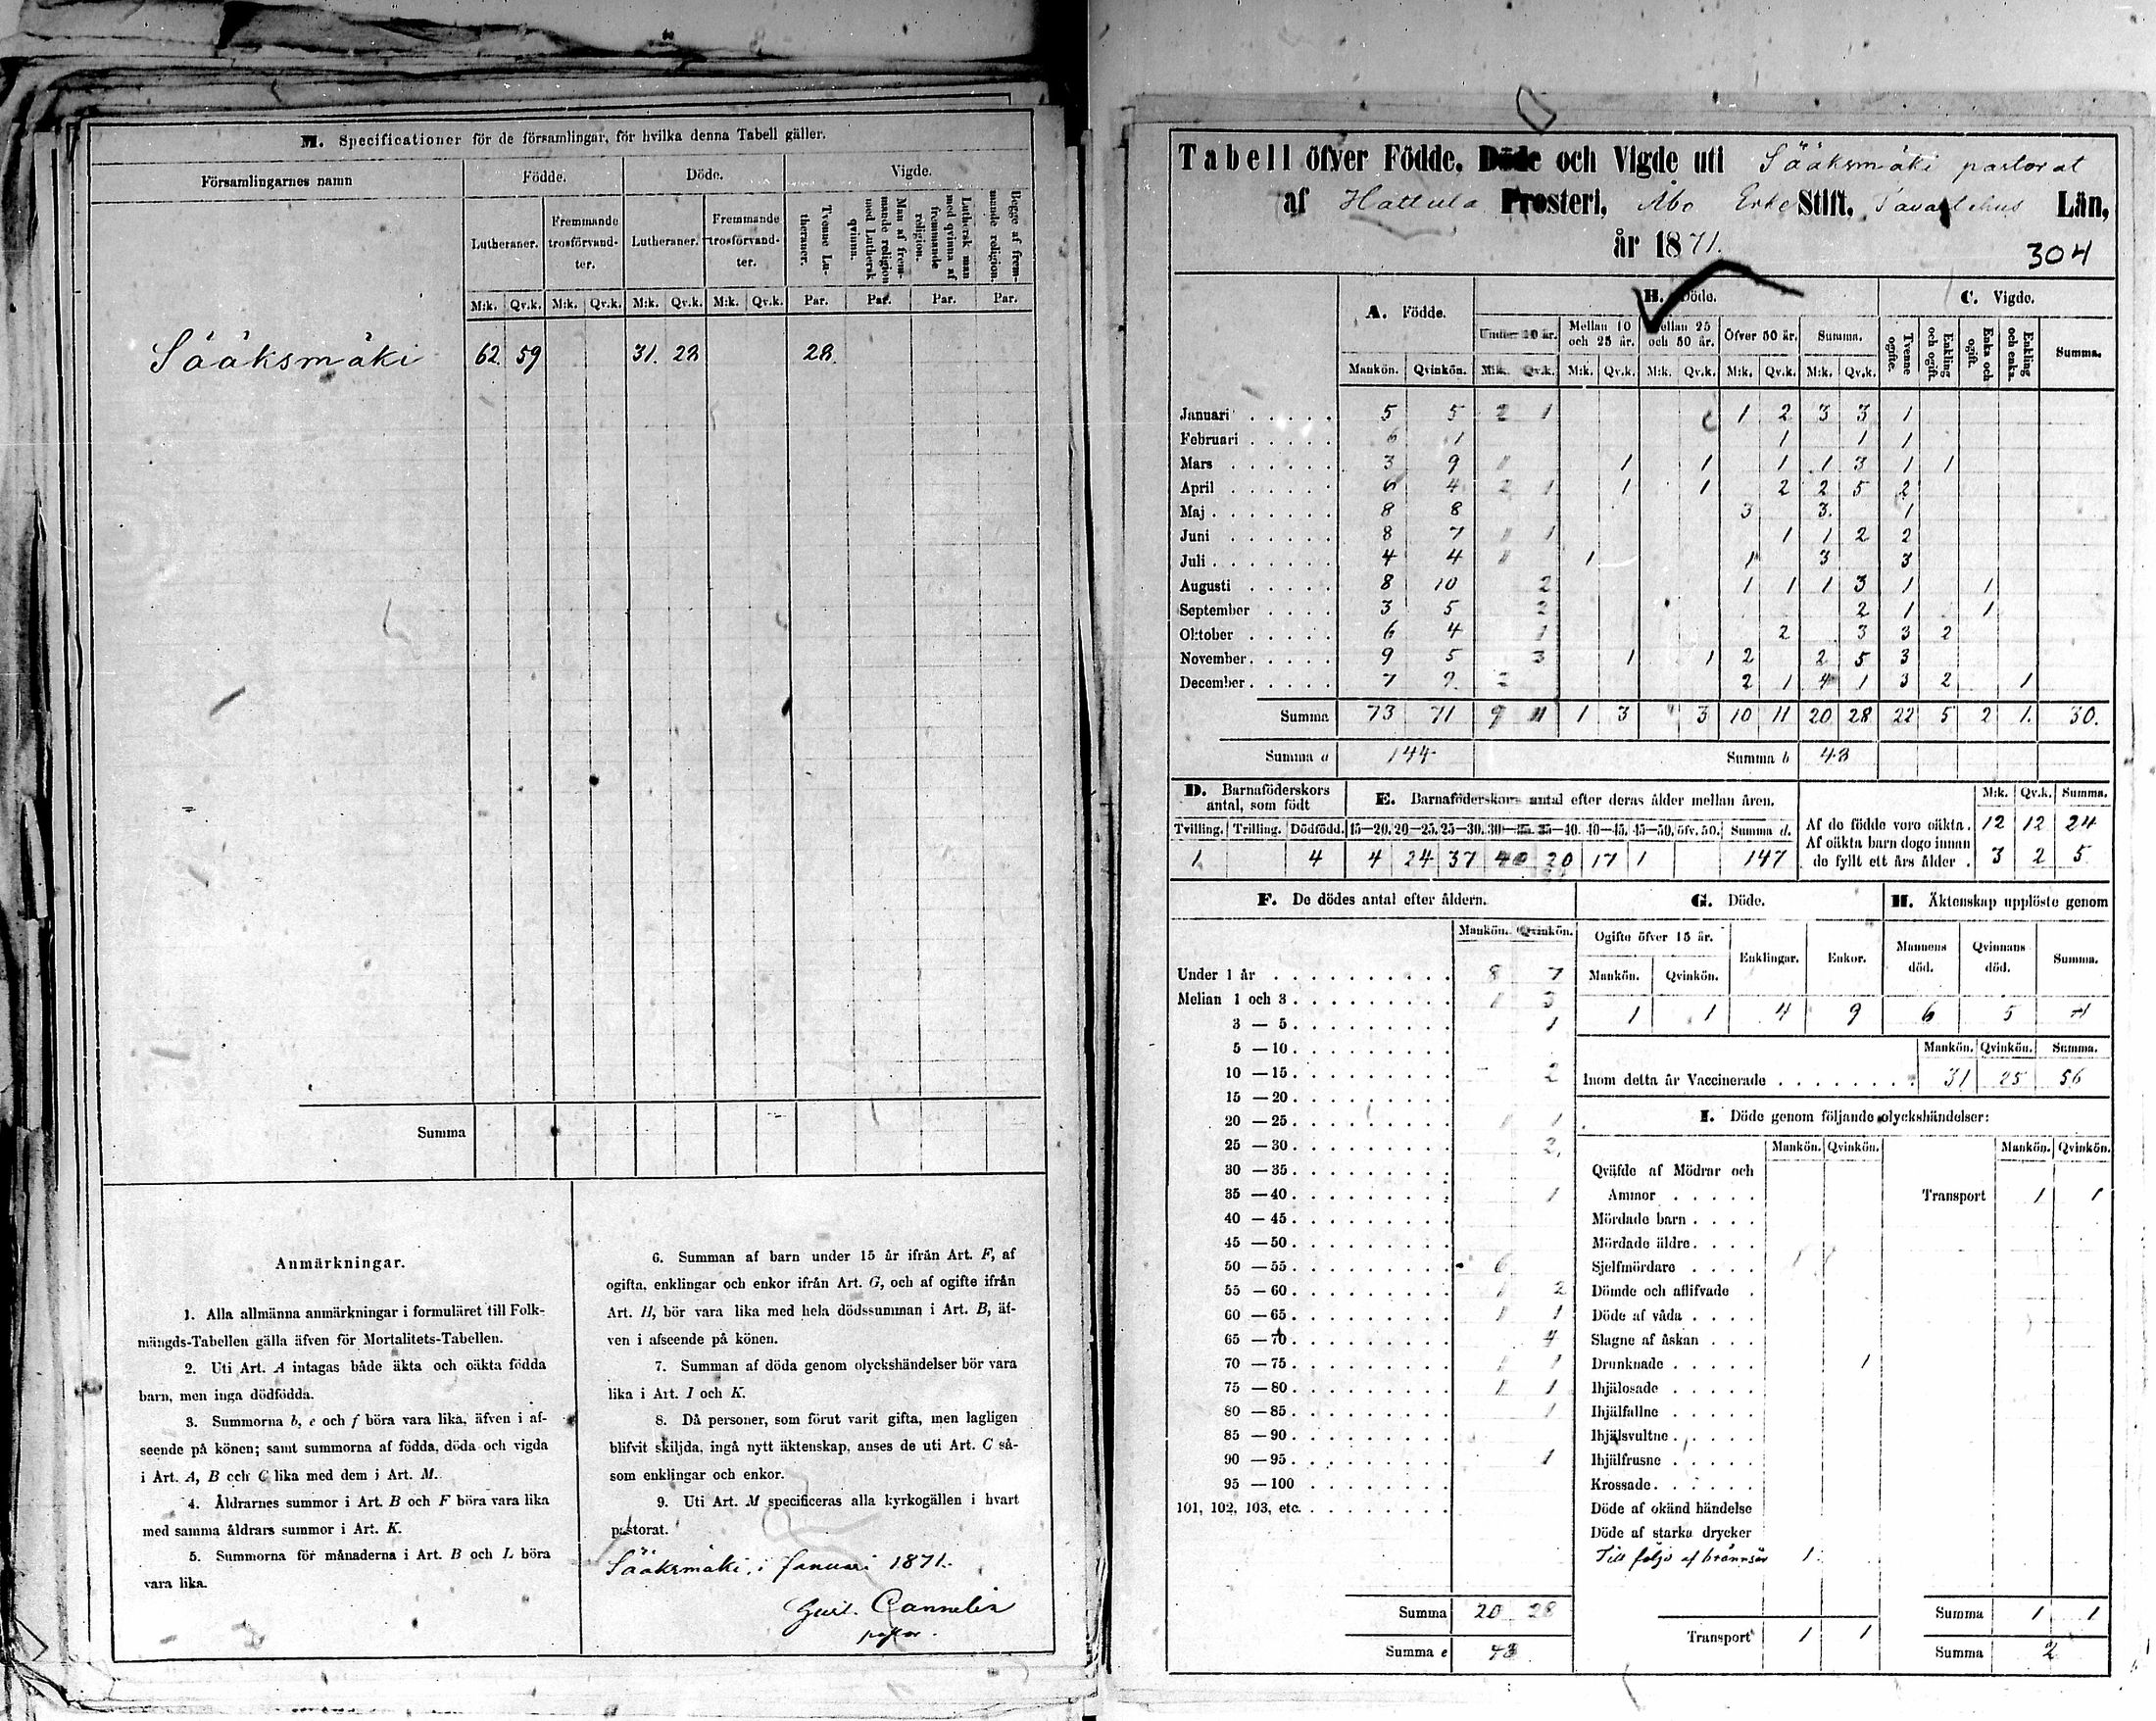 M. Specificationer för de församlingar, för hvilka denna Tabell gäller.
Församlingarnes namn Födde. Döde. Vigde.
Lutheraner. Fremmande trosförvandter. Lutheraner. Fremmande trosförvandter. Tvenne Lutheraner. Man af fremmande religion med Luthersk qvinna. Luthersk man med qvinna af fremmande religion. Begge af fremmande religion.
M:k. Qv.k. M:k. Qv.k. M:k. Qv.k. M:k. Qv.k. Par. Par. Par. Par.
Sääksmäki 62 59 31. 28 28.
Summa
Anmärkningar.
1. Alla allmänna anmärkningar i formuläret till Folk-
mängds-Tabellen gälla äfven för Mortalitets-Tabellen.
2. Uti Art. A intagas både äkta och oäkta födda
barn, men inga dödfödda.
3. Summorna b, e och f böra vara lika, äfven i af-
seende på könen; samt summorna af födda, döda och vigda
i Art. A, B och C lika med dem i Art. M.
4. Åldrarnes summor i Art. B och F böra vara lika
med samma åldrars summor i Art. K.
5. Summorna för månaderna i Art. B och L böra
vara lika.
6. Summan af barn under 15 år ifrån Art. F, af
ogifta, enklingar och enkor ifrån Art. G, och af ogifte ifrån
Art. H, bör vara lika med hela dödssumman i Art. B, äf-
ven i afseende på könen.
7. Summan af döda genom olyckshändelser bör vara
lika i Art. I och K.
8. Då personer, som förut varit gifta, men lagligen
blifvit skiljda, ingå nytt äktenskap, anses de uti Art. C så-
som enklingar och enkor.
9. Uti Art. M specificeras alla kyrkogällen i hvart
pastorat.
Sääksmäki, i Januari 1871.
Gust. Cannelin
pastor.
Tabell öfver Födde, Döde och Vigde uti Sääksmäki pastorat
af Hattula Prosteri, Åbo Erke Stift, Tavastehus Län,
år 1871.
304
A. Födde. B. Döde. C. Vigde.
Under 10 år. Mellan 10 och 25 år. Mellan 25 och 50 år. Öfver 50 år. Summa. Tvenne ogifte. Enkling och ogift. Enka och ogift. Enkling och enka. Summa.
Mankön. Qvinkön. M:k. Qv.k. M:k. Qv.k. M:k. Qv.k. M:k. Qv.k. M:k. Qv.k.
Januari 5 5 2 1 1 2 3 3 1
Februari 6 1 1 1 1
Mars 3 9 1 1 1 1 1 3 1 1
April 6 4 2 1 1 1 2 2 5 2
Maj 8 8 3 3. 1
Juni 8 7 1 1 1 1 2 2
Juli 4 4 1 1 1 3 3
Augusti 8 10 2 1 1 1 3 1 1
September 3 5 2 2 1 1
Oktober 6 4 1 2 3 3 2
November 9 5 3 1 1 2 2 5 3
December 7 9 2 2 1 4 1 3 2 1
Summa 73 71 9 11 1 3 3 10 11 20 28 22 5 2 1. 30.
Summa a 144 Summa b 48
D. Barnaföderskors antal, som födt
Tvilling. Trilling. Dödfödd.
1 4
E. Barnaföderskors antal efter deras ålder mellan åren.
15—20. 20—25. 25—30. 30—35. 35—40. 40—45. 45—50. öfv. 50. Summa d.
4 24 37 40 17 1 147
M:k. Qv.k. Summa.
Af de födde voro oäkta. 12 12 24
Af oäkta barn dogo innan
de fyllt ett års ålder. 3 2 5
F. De dödes antal efter åldern.
Mankön. Qvinkön.
Under 1 år 8 7
Mellan 1 och 3 1 3
3 — 5 1
5 — 10
10 — 15 2
15 — 20
20 — 25 1 1
25 — 30 2.
30 — 35
35 — 40 1
40 — 45
45 — 50
50 — 55 6
55 — 60 1 2
60 — 65 1 1
65 — 70 4
70 — 75 1 1
75 — 80 1 1
80 — 85 1
85 — 90
90 — 95 1
95 — 100
101, 102, 103, etc.
Summa 20 28
Summa e 48
G. Döde.
Ogifte öfver 15 år. Enklingar. Enkor.
Mankön. Qvinkön.
1 1 4 9
H. Äktenskap upplöste genom
Mannens död. Qvinnans död. Summa.
6 5
Mankön. Qvinkön. Summa.
Inom detta år Vaccinerade 31 25 56
I. Döde genom följande olyckshändelser:
Mankön. Qvinkön. Mankön. Qvinkön.
Qväfde af Mödrar och
Ammor Transport 1 1
Mördade barn
Mördade äldre
Sjelfmördare
Dömde och aflifvade
Döde af våda
Slagne af åskan
Drunknade 1
Ihjälosade
Ihjälfallne
Ihjälsvultne
Ihjälfrusne
Krossade
Döde af okänd händelse
Döde af starka drycker
Till följe af brännsår 1
Summa 1 1
Transport 1 1
Summa 2